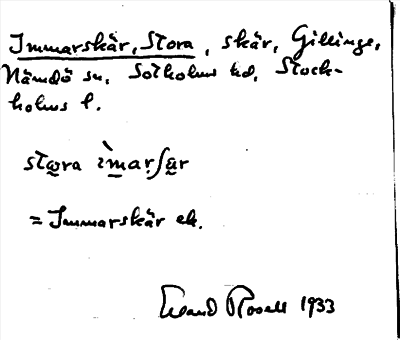 Immarskär, Stora, skär, Gillinge,
Nämdö sn, Sotholms hd, Stock-
holms l.
stωra ìmarʃär
= Immarskär ek.
Rosell 1933